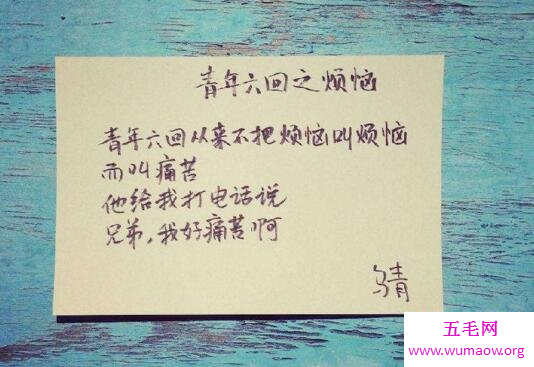 青年六回之烦恼
青年六回从来不把烦恼叫烦恼
而叫痛苦
他给我打电话说
兄弟，我好痛苦啊
乌青
五毛网
www.wumaow.org